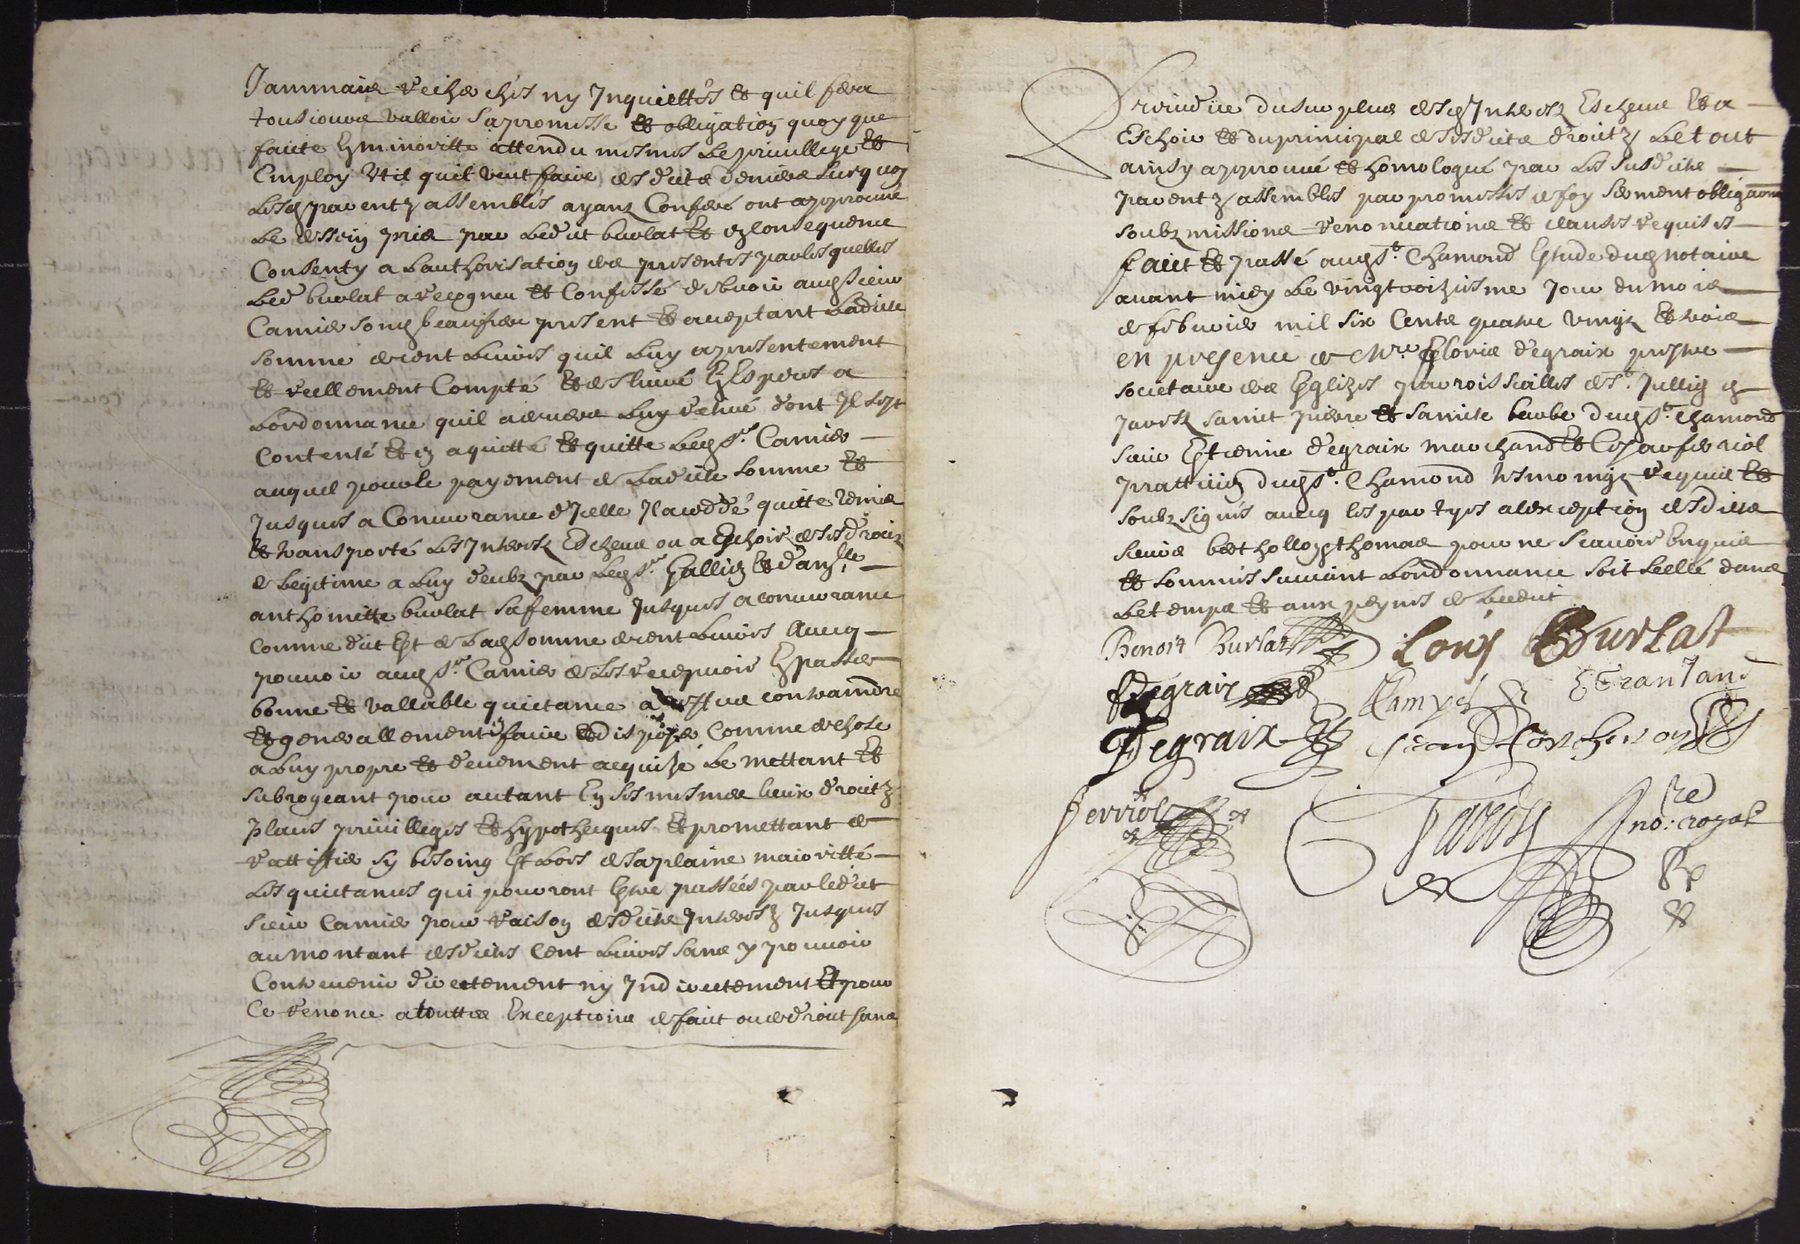 Jammais recherchés ny Inquiettés et quil fera
tousiours valloir sa promesse et obligation quoy que
faicte En minoritté attendu mesmes Le privillege et
Employ Util quil veut faire desdits deniers surquoy
Lesd parentz assemblés ayant Conferé ont approuvé
Le dessein pris par Ledit burlat et en Consequence
Consenty a Lauthorisation des presentes par lesquelles
Led burlat a recogneu et Confessé debvoir aud sieur
Camier son beaufrere present et acceptant Ladicte
somme de cent Livres quil Luy a presentement
et reellement Compté et deslivré En Especes a
Lordonnance quil a devers Luy retiré dont Il sest
Contenté et en a quitté et quitte Led Sr. Camier
auquel pour le payement de Ladicte somme et
Jusques a Concurance dIcelle Il a ceddé quitté remis
et transporté Les Interestz Escheus ou a Eschoir de ses droictz
de Legitime a Luy deubz par Led Sr. Gallien et dam.lle
anthoinette burlat sa femme Jusques a concurance
comme dit Est de Lad somme de cent Livres Avecq
pouvoir aud Sr. Camier de Les recepvoir En passer
bonne et vallable quictance a deffaut contraindre
et generallement En faire et disposer Comme de chose
a Luy propre et deuement acquise Le mettant et
subrogeant pour autant En ses mesmes lieux droictz
places privilleges et hypotheques et promettant de
rattiffier sy besoing Est Lors de sa plaine maioritté
Les quictances qui pourront Estre passées par ledit
sieur Camier pour raison desdits Interestz Jusques
au montant desdittes Cent Livres sans y pouvoir
Contrevenir directement ny Indirectement et pour
Ce renonce a touttes Exceptions de fait ou de droict sans
Preiudice du surplus desd Interestz Escheus et a
Eschoir et du principal de sesdits droictz Le tout
ainsy approuvé et homologué par Les susdits
parentz assemblés par promesses de foy serment obligations
soubzmissions renonciations et clauses requises
faict et passé aud St. Chamond Estude dud notaire
avant midy Le vingt troiziesme Jour du mois
de febvrier mil six Cents quatre vingt et trois
en presence de Mre. degraix prestre
societaire des Eglizes parroissialles de St. Jullien en
Jarestz sainct pierre et saincte barbe dud St. Chamond
sieur Estienne degraix marchand et ferriol
pratticien dud St. Chamond tesmoingz requis et
soubzsignés avecq les partyes a lexception desdits
sieurs bertholloz thomas pour ne scavoir Enquis
et sommés suivant Lordonnance soit scellé dans
Le temps et aux peynes de Leedict
Benoit Burlat Loüis Burlat
Degraix
Degraix
Ferriol
no: royal